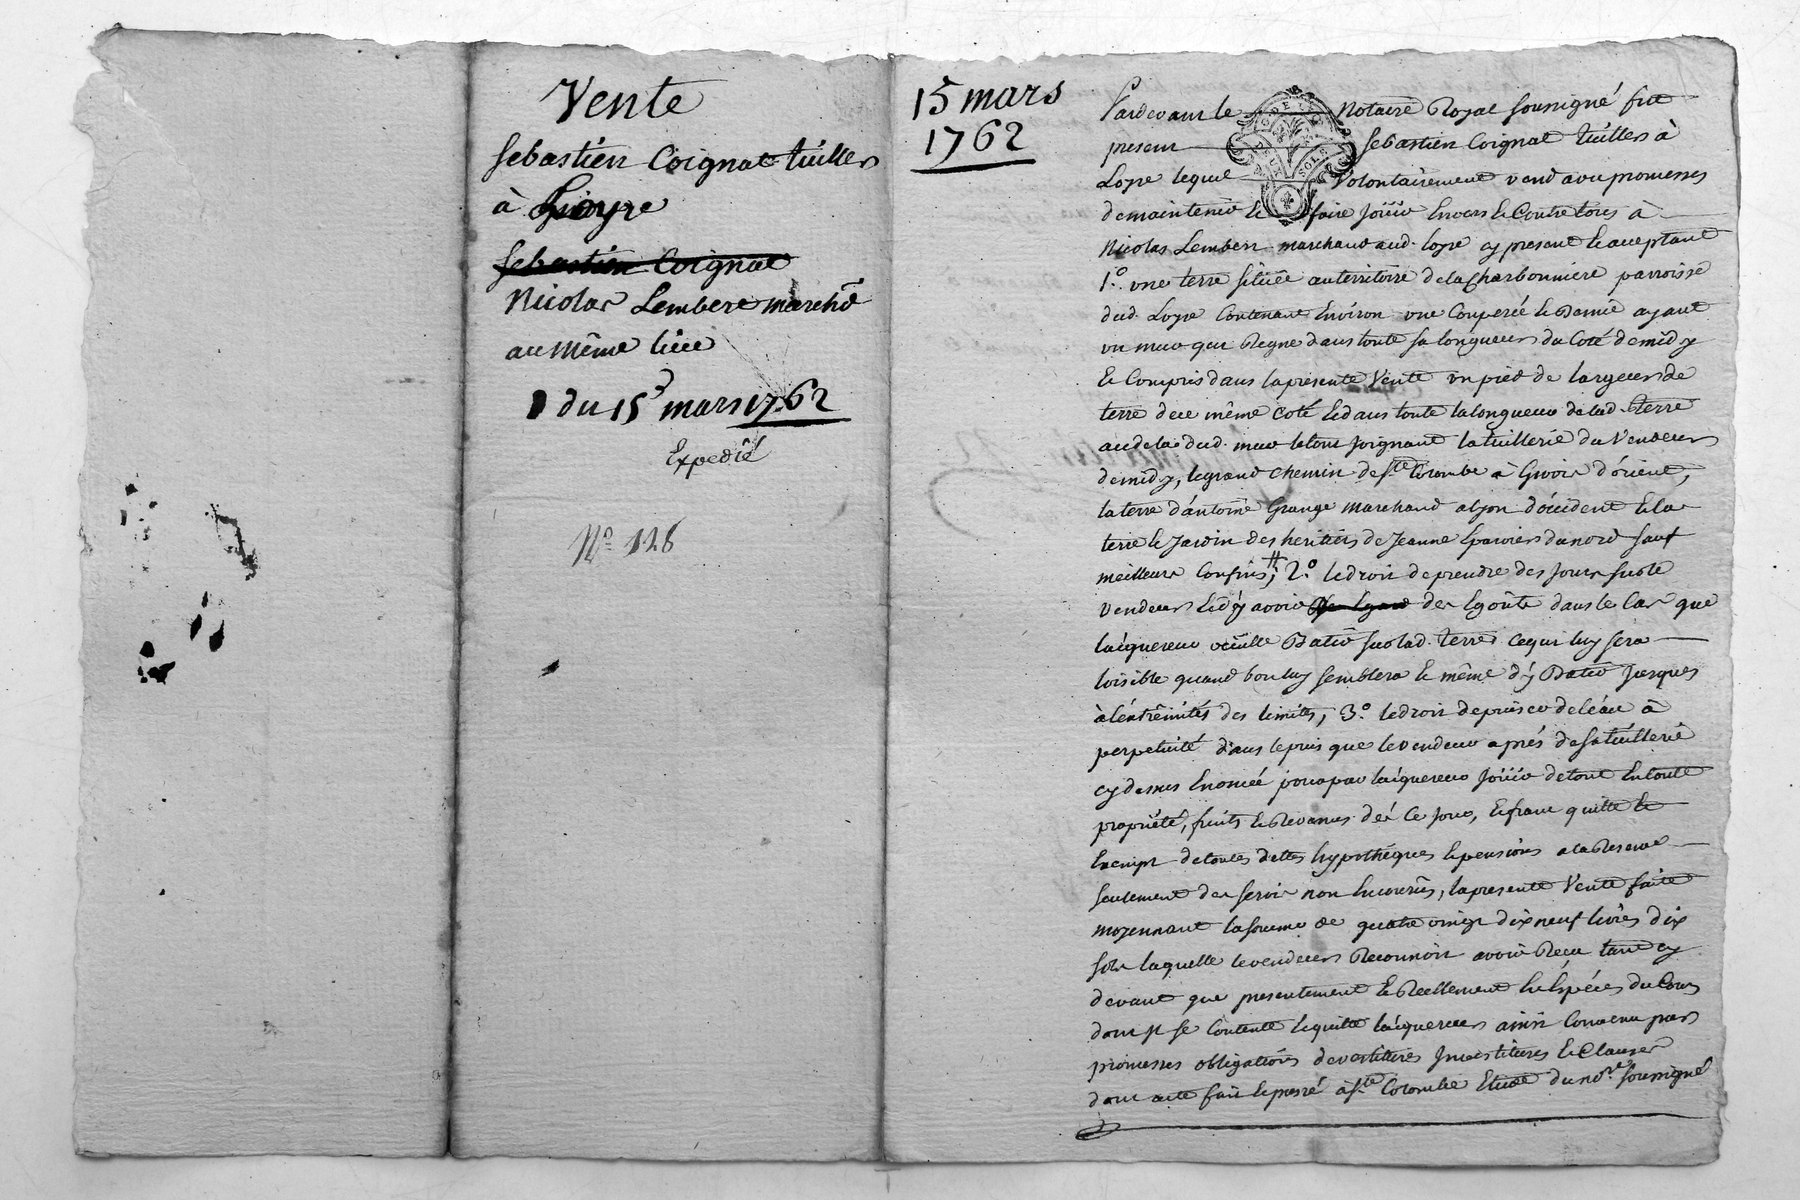 Vente
Sebastien Coignat tuillier
à Loyre
Sebastien Coignat
Nicolas Lembert marchd
au même lieu
du 15 mars 1762
Expedié
No 128
15 mars
1762
Pardevant le Notaire Royal soussigné fut
present Sebastien Coignat tuillier à
Loyre lequel volontairement vend avec promesses
de maintenir et faire jouir envers et contre tous à
Nicolas Lembert marchand aud. loyre cy present et acceptant
1.° une terre située au territoire de la Charbonniere parroisse
dud. Loyre contenant environ une couperée et demie ayant
un mur qui regne dans toute sa longueur du coté de midy
et compris dans la presente vente un pied de largeur de
terre de ce même coté et dans toute la longueur de lad. terre
au dela dud. mur le tout joignant la tuillerie du vendeur
de midy, le grand chemin de Ste Colombe à Givors d'orient,
la terre d'antoine Grange marchand a lyon d'occident et la
terre et jardin des heritiers de Jeanne Eparvier du nord sauf
meilleurs confins; # 2.° le droit de prendre des jours sur le
vendeur et d'y avoir des egoûts dans le cas que
l'acquereur veuille batir sur lad. terre ce qui luy sera
loisible quand bon luy semblera et même d'y batir jusques
à l'extrêmités des limites, 3.° le droit de puiser de l'éau à
perpetuité dans le puis que le vendeur a prés de sa tuillerie
cy dessus enoncée pour par l'acquereur jouir de tout en toute
proprieté, fruits et revenus dés ce jour, et franc quitte et
exempt de toutes dettes hypothéques et pensions a la reserve
seulement des servis non encourus, la presente vente faite
moyennant la somme de quatre vingt dix neuf livres dix
sols laquelle le vendeur reconnoit avoir reçu tant cy
devant que presentement et reellement en espéces du cours
dont il se contente et quitte l'acquereur ainsi convenu par
promesses obligations devestitures investitures et clauses
dont acte fait et passé à Ste Colombe etude du nore soussigné